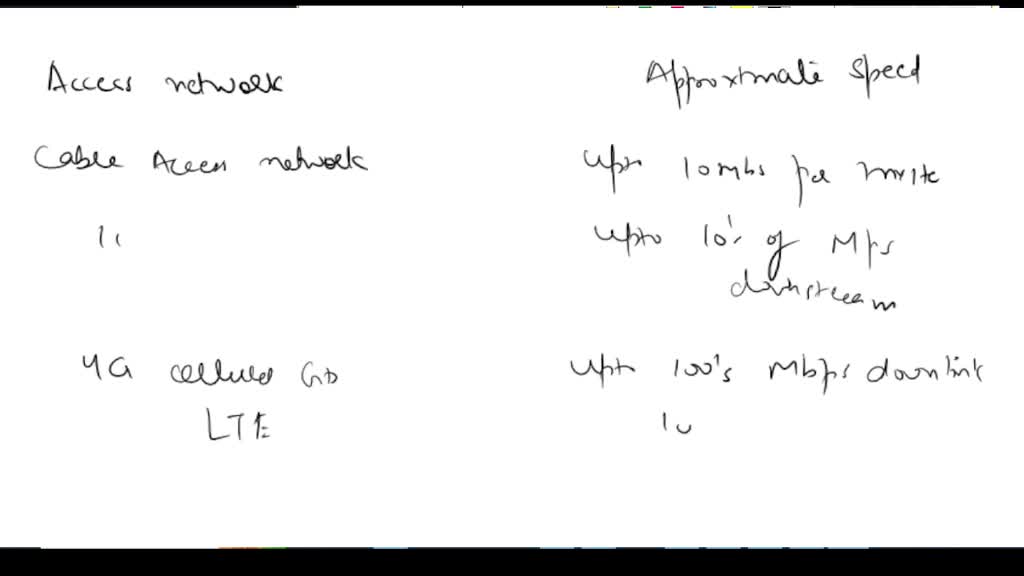 Access network Approximate speed
Cable Access network upto 10 mbs per
11 upto 10's of Mps
downstream
4G upto 100's Mbps downlink
LTE